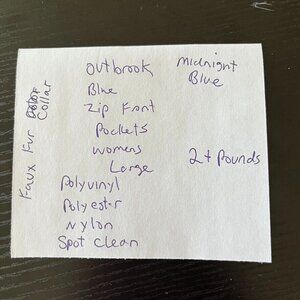 Outbrook
Blue
Zip Font
Pockets
Womens
Large
Polyvinyl
Polyester
Nylon
Spot Clean
Midnight
Blue
2+ Pounds
Faux Fur Collar